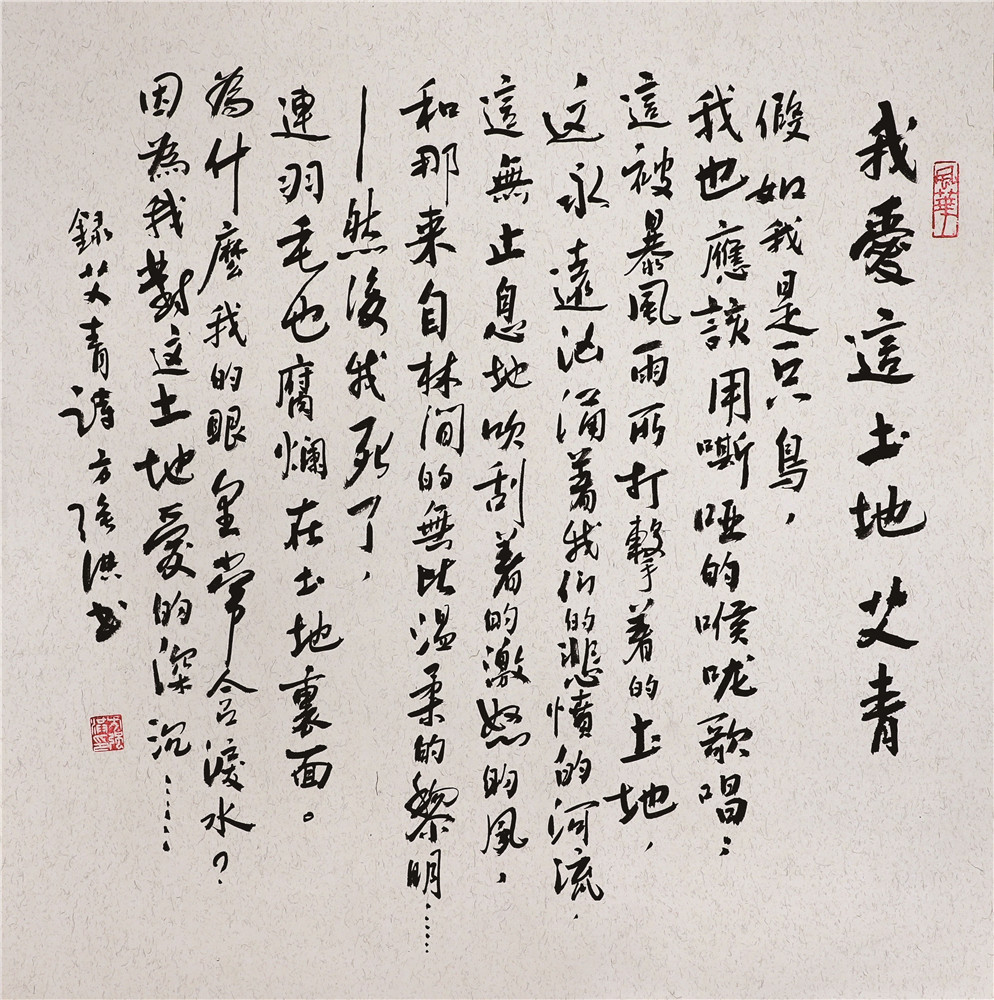 我愛這土地 艾青
假如我是一只鳥，
我也應該用嘶啞的喉咙歌唱：
這被暴風雨所打擊着的土地，
这永遠汹涌着我们的悲憤的河流，
這無止息地吹刮着的激怒的風，
和那来自林間的無比温柔的黎明……
—然後我死了，
連羽毛也腐爛在土地裏面。
為什麼我的眼里常含淚水？
因為我對这土地愛的深沉……
錄艾青詩 方強洪书